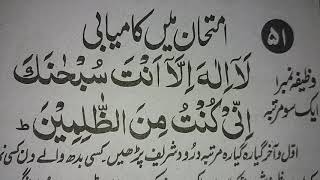 ۵۱
امتحان میں کامیابی
وظیفہ نمبر۱
ایک سو مرتبہ
لَآ اِلٰهَ اِلَّآ اَنْتَ سُبْحٰنَكَ
اِنِّیْ كُنْتُ مِنَ الظّٰلِمِیْنَ ط
اول و آخر گیارہ گیارہ مرتبہ درود شریف پڑھیں۔ کسی بدھ والے دن کسی